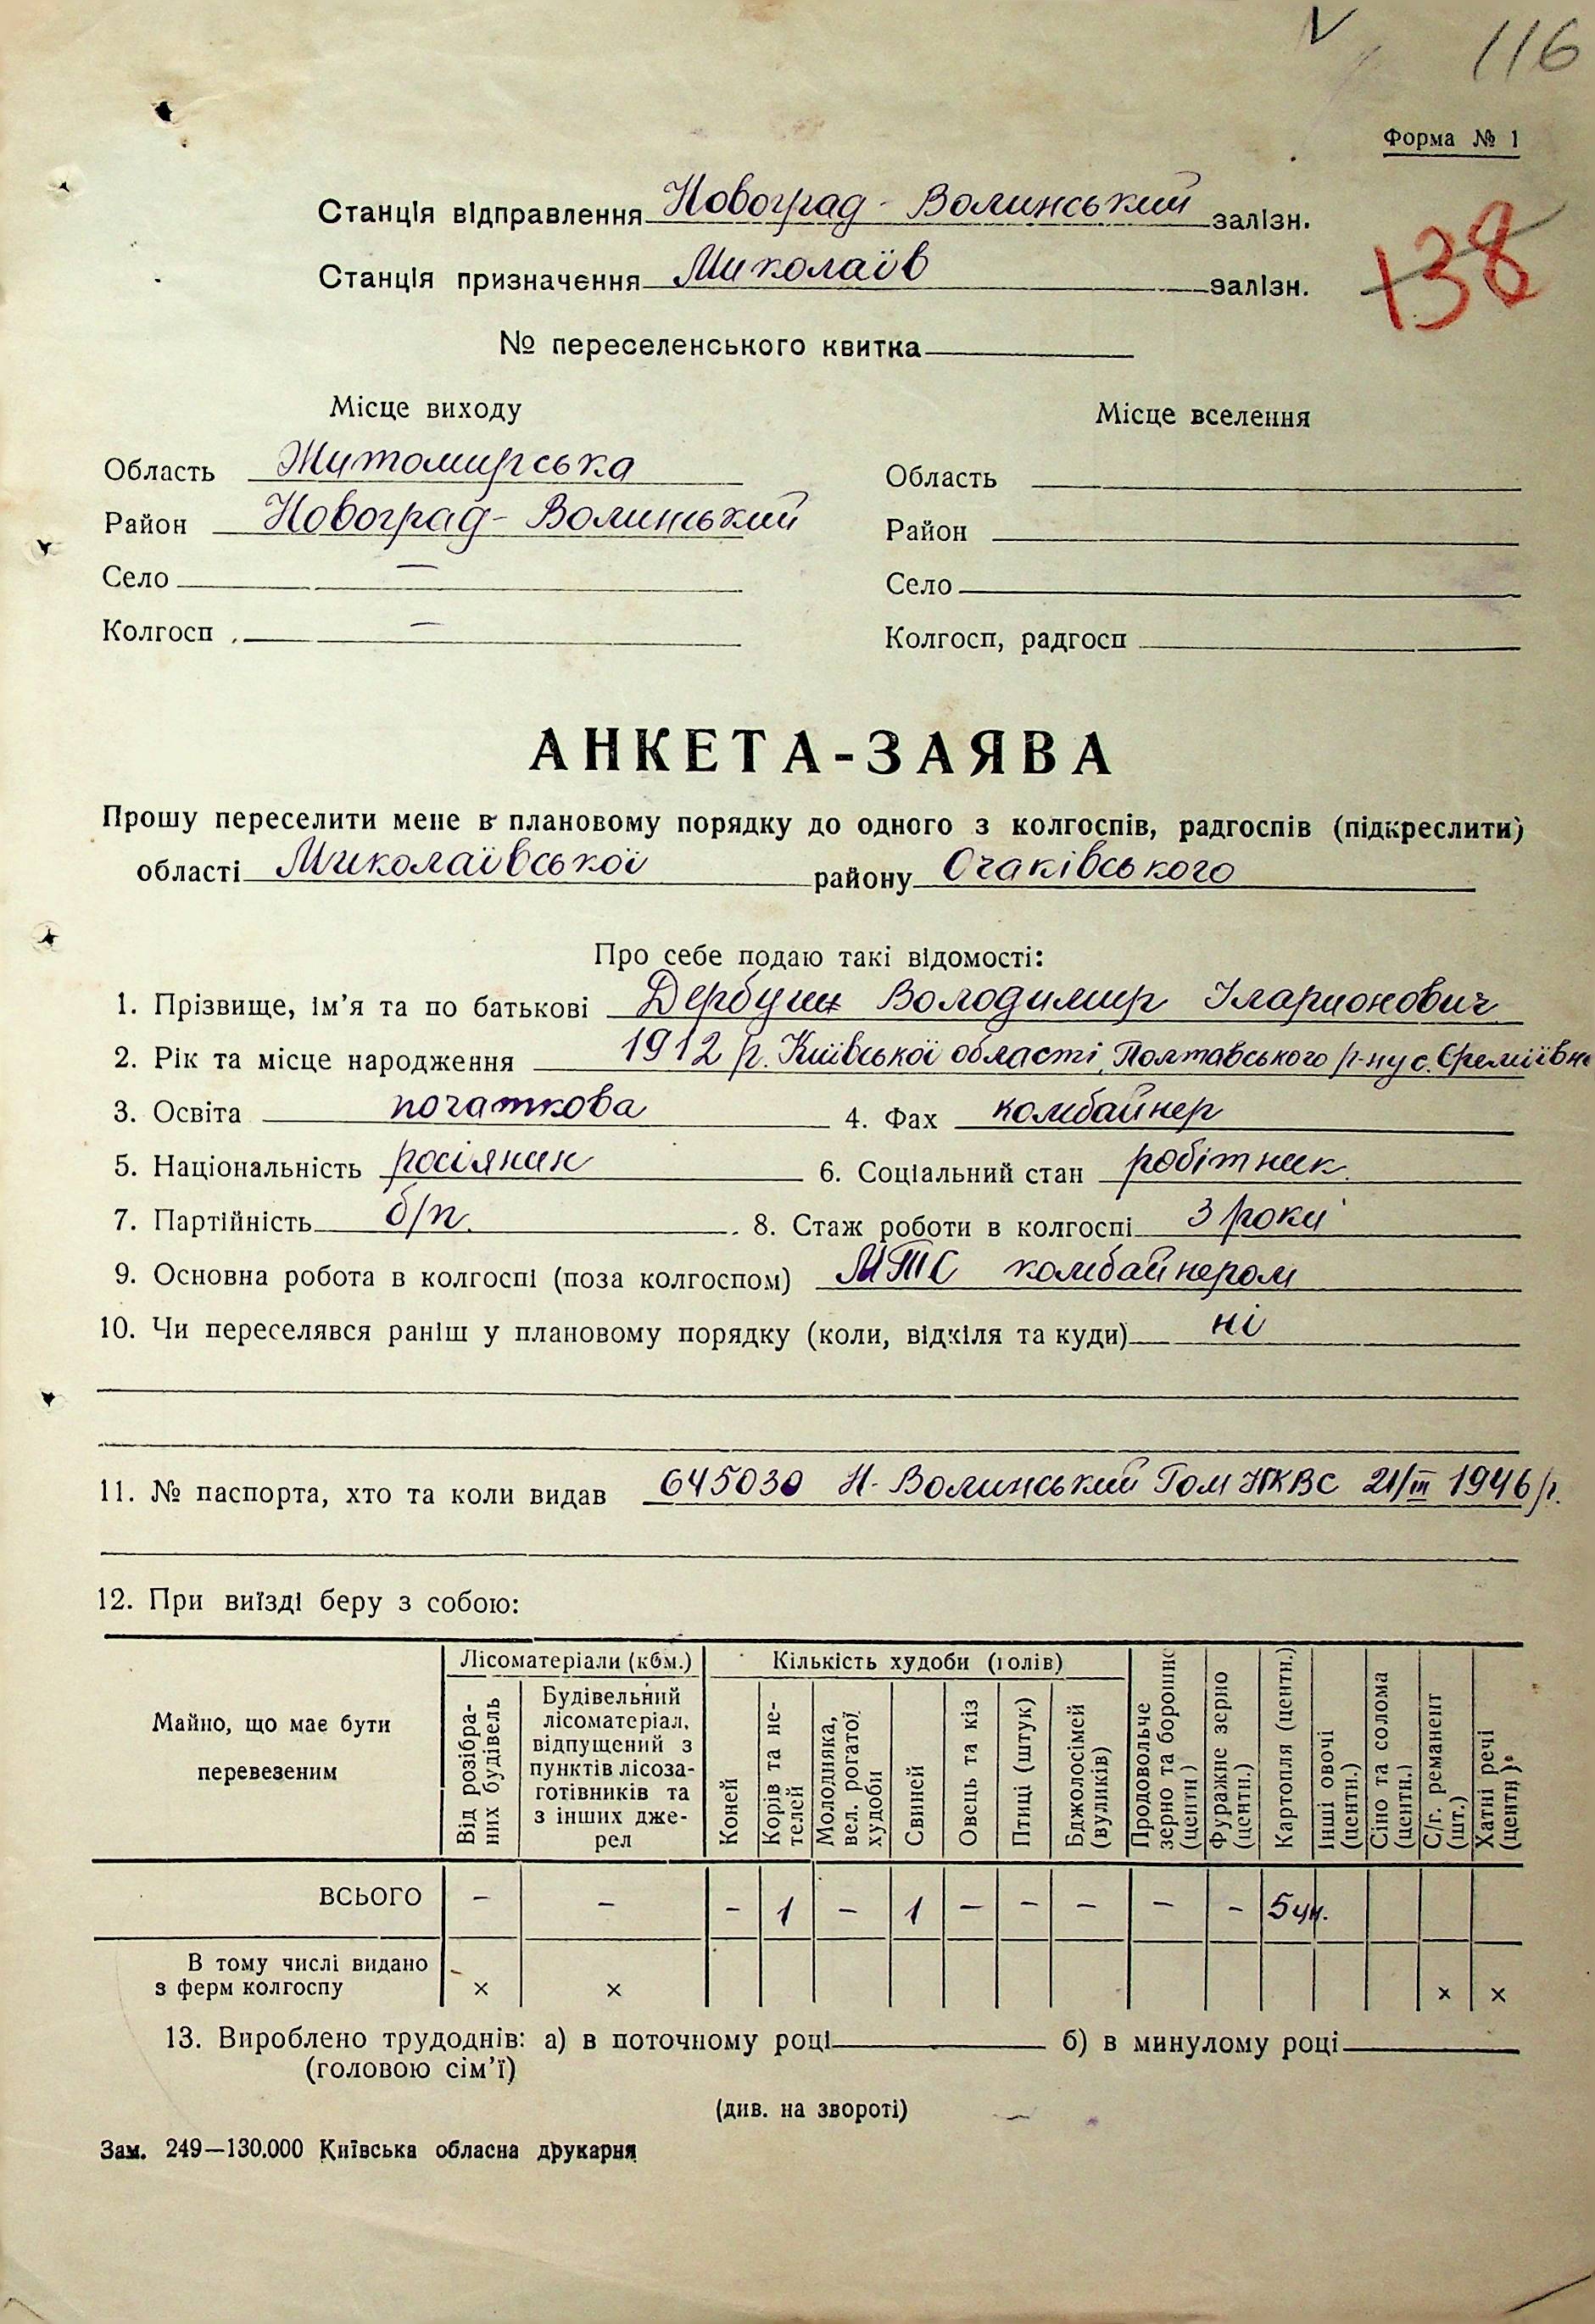 116
Форма № 1
Станція відправлення Новоград-Волинський залізн.
138
Станція призначення Миколаїв залізн.
№ переселенського квитка
Місце виходу
Місце вселення
Область Житомирська
Область
Район Новоград-Волинський
Район
Село —
Село
Колгосп —
Колгосп, радгосп
АНКЕТА-ЗАЯВА
Прошу переселити мене в плановому порядку до одного з колгоспів, радгоспів (підкреслити)
області Миколаївської району Очаківського
Про себе подаю такі відомості:
1. Прізвище, ім’я та по батькові Дербуш Володимир Іларионович
2. Рік та місце народження 1912 р. Київської області, Полтавського р-ну с.
3. Освіта початкова 4. Фах комбайнер
5. Національність росіянин 6. Соціальний стан робітник.
7. Партійність б/п. 8. Стаж роботи в колгоспі 3 роки
9. Основна робота в колгоспі (поза колгоспом) МТС комбайнером
10. Чи переселявся раніш у плановому порядку (коли, відкіля та куди) ні
11. № паспорта, хто та коли видав 645030 Н-Волинський НКВС 21/III 1946 р.
12. При виїзді беру з собою:
Майно, що має бути перевезеним
Лісоматеріали (кбм.)
Від розібраних будівель
Будівельний лісоматеріал, відпущений з пунктів лісозаготівників та з інших джерел
Кількість худоби (голів)
Коней
Корів та нетелей
Молодняка, вел. рогатої худоби
Свиней
Овець та кіз
Птиці (штук)
Бджолосімей (вуликів)
Продовольче зерно та борошно (центн)
Фуражне зерно (центн.)
Картопля (центн.)
Інші овочі (центн.)
Сіно та солома (центн.)
С/г. реманент (шт.)
Хатні речі (центн)
ВСЬОГО – – – 1 – 1 – – – – – 5 цн.
В тому числі видано
з ферм колгоспу × × × ×
13. Вироблено трудоднів: а) в поточному році б) в минулому році
(головою сім’ї)
(див. на звороті)
Зам. 249—130.000 Київська обласна друкарня